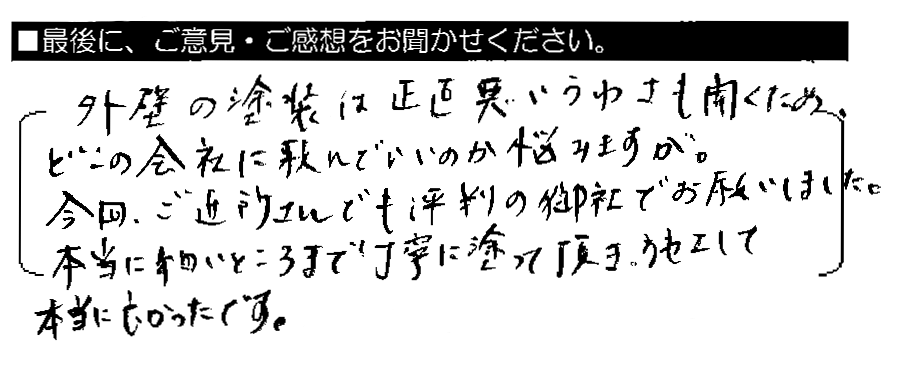 ■最後に、ご意見・ご感想をお聞かせください。
外壁の塗装は正直悪いうわさも聞くため、
どこの会社に頼んでいいのか悩みますが。
今回、ご近所さんでも評判の御社でお願いしました。
本当に細いところまで丁寧に塗って頂き、施工して
本当によかったです。